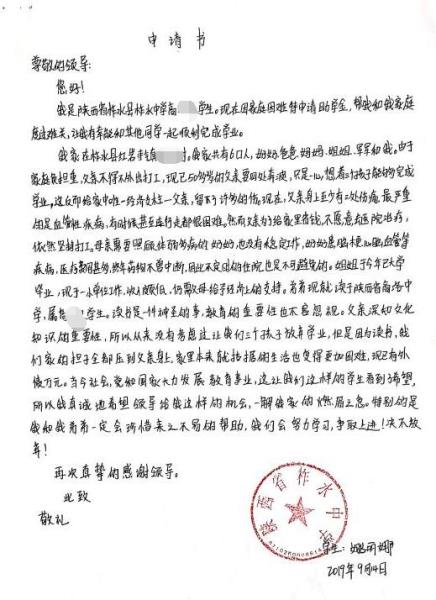 申请书
尊敬的领导:
您好!
我是陕西省柞水县柞水中学高 学生。现在因家庭困难特申请助学金,帮我和我家庭
度过难关,让我有幸能和其他同学一起顺利完成学业。
我家在柞水县红岩寺镇 我家共有6口人,奶奶、爸爸、妈妈、姐姐、军军和我。由于
家庭负担重,父亲不得不外出打工,现已50多岁的父亲要四处奔波,只是一心想着让孩子能够完成学
业。这也即给家中唯一经济支柱—父亲,留下了许多的伤。现在,父亲身上至少有二处伤痛,最严重
的是血管性疾病,有时候甚至连行走都很困难。然而父亲为了给家里省钱,不愿意去医院治疗,
依然坚持打工。母亲需要照顾年弱多病的奶奶也没有稳定工作,奶奶患脑梗、心脑血管等
疾病,医药费用甚多,终年药物不曾中断,因此不定期的住院也是不可避免的。姐姐于今年大学
毕业,现于一小学任工作,收入颇低,仍需父母给予经济上的支持。 现就读于陕西省商洛中
学,属 学生。读书是一件神圣的事,教育的重要性也不容忽视。父亲深知文化
知识的重要性,所以从来没有考虑过让我们三个孩子放弃学业,但是因为读书,我
们家的担子全都压到父亲身上,家里本来就拮据的生活也变得更加困难,现已有外
债 万元。当今社会,党和国家大力发展教育事业,这让我们这样的学生看到了希望,
所以我真诚地希望领导给我这样的机会,一解我家的燃眉之急。特别的是
我和我弟弟一定会珍惜来之不易的帮助,我们会努力学习,争取上进!决不放
弃!
再次真挚的感谢领导。
此致
敬礼
陕西省柞水中学
学生:
2019年9月4日